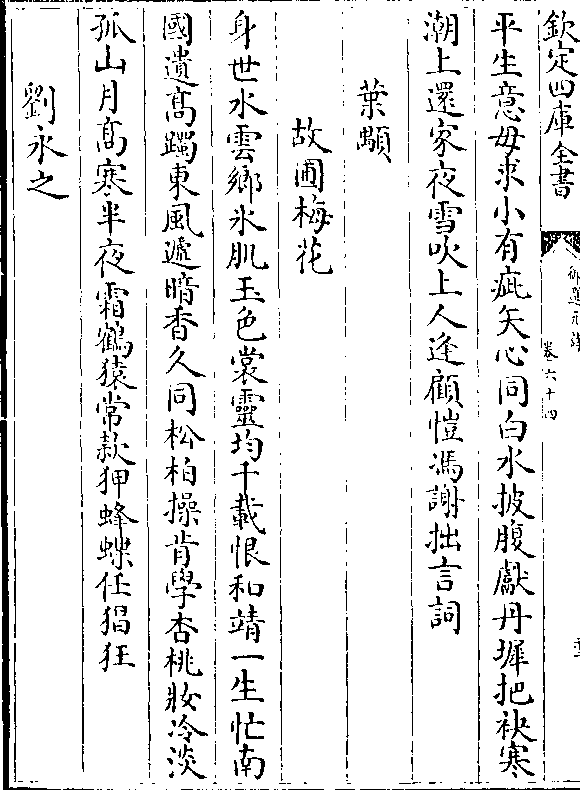 欽定四庫全書
御選元詩
卷六十四
平生意毋求小有疵矢心同白水披腹獻丹墀把袂寒
潮上還家夜雪吹上人逢顧愷馮謝拙言詞
葉顒
故圃梅花
身世水雲鄉氷肌玉色裳靈均千載恨和靖一生忙南
國遺髙躅東風遞暗香久同松柏操肯學杏桃妝冷淡
孤山月髙寒半夜霜鶴猿常款狎蜂蝶任猖狂
劉永之